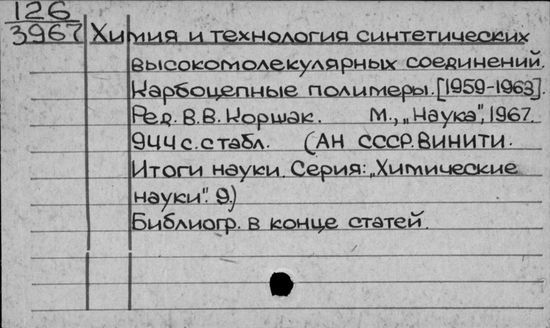 126
3967 Химия и технология синтетических
высокомолекулярных соединений.
Карбоцепные полимеры. [1959-1963].
Ред. В.В. Коршак. М., „Наука", 1967.
944 с. с табл. (АН СССР. ВИНИТИ.
Итоги науки. Серия: „Химические
науки". 9.)
Библиогр. в конце статей.